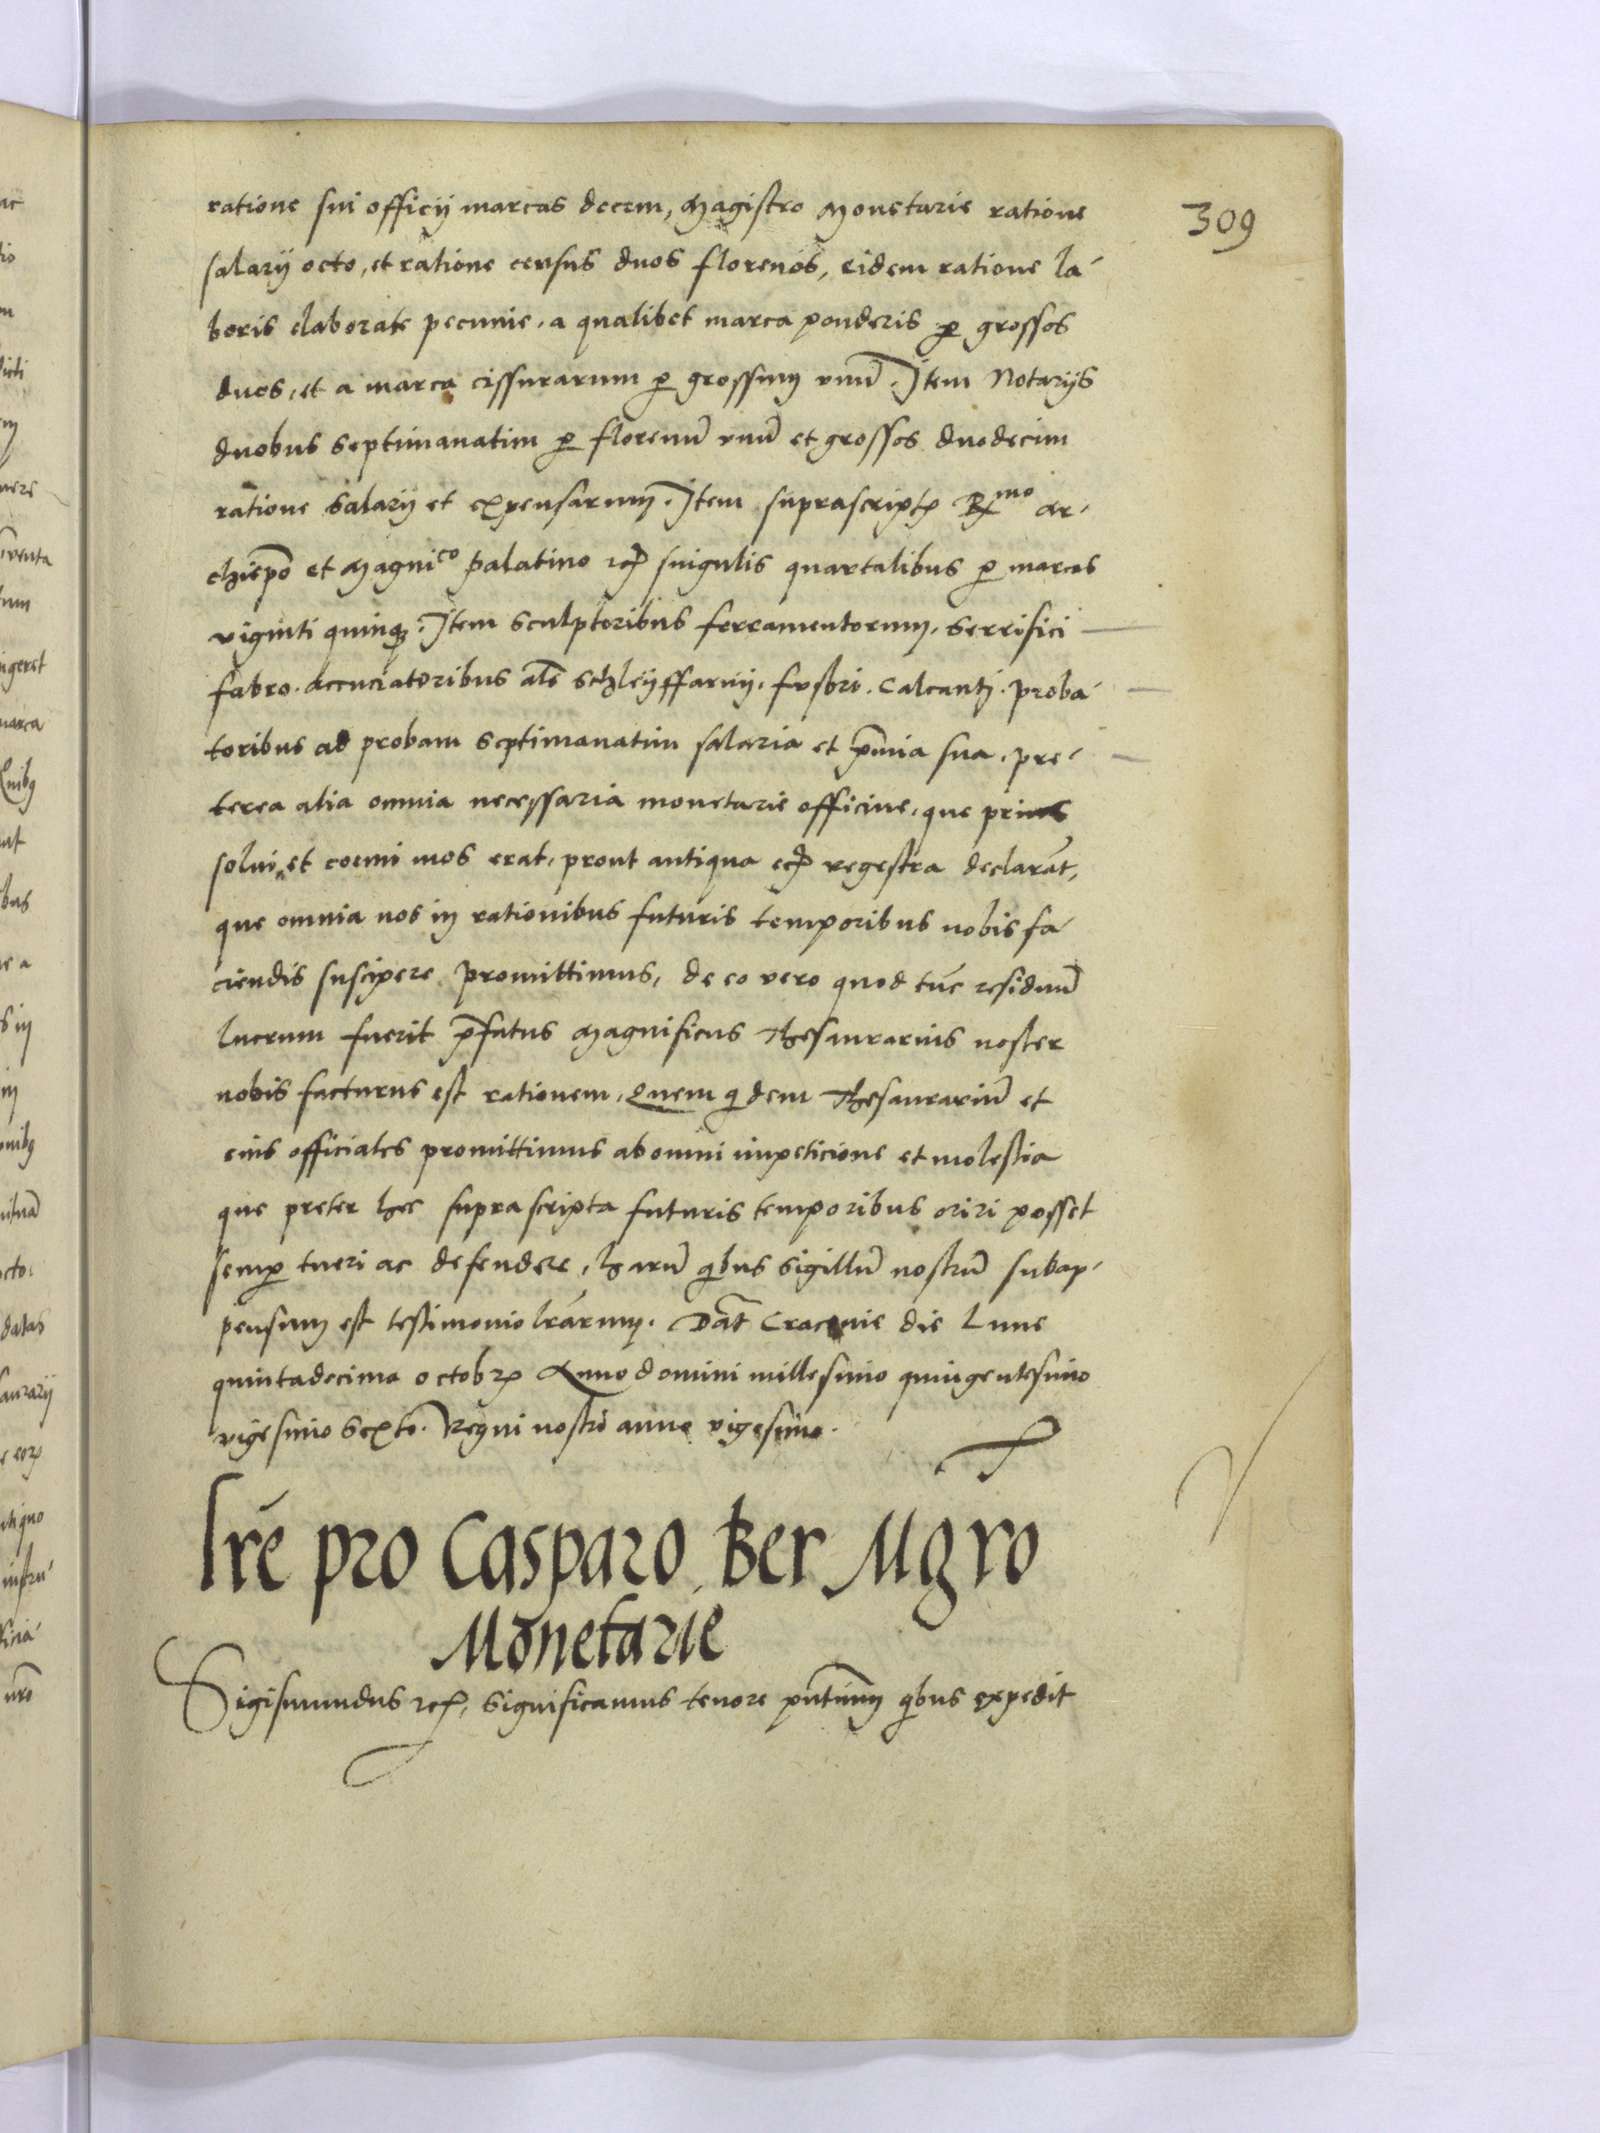 309
ratione sui officij marcas decem, Magistro Monetarie ratione
salarij octo, et ratione census duos florenos, eidem ratione la-
boris elaborate pecunie, a qualibet marca ponderis p grossos
duos, et a marca cissurarum p grossum vnū. Item Notarijs
duobus septimanatim p florenū vnū et grossos duodecim
ratione salarij et expensarum. Item suprascript Rmo Ar-
chiepō et Magnico palatino singulis quartalibus p marcas
viginti quinq. Item sculptoribus ferramentorum, serrifici
fabro. Accuciatoribus als schleijffarnij. fusori. Calcanti. proba-
toribus ad probam septimanatim salaria et p̄mia sua, pre-
terea alia omnia necessaria monetarie officine, que prius
solui et coemi mos erat, prout antiqua regestra declarāt,
que omnia nos in rationibus futuris temporibus nobis fa-
ciendis suscipere promittimus, de eo vero quod tūc residuū
lucrum fuerit p̄fatus Magnificus Thesaurarius noster
nobis facturus est rationem, Quem qdem Thesaurariū et
eius officiales promittimus ab omni impeticione et molestia
que preter hec suprascripta futuris temporibus oriri posset
semp tueri ac defendere, harū qbus sigillū nostrū subap-
pensum est testimonio lrārum. Dat̄ Cracouie die Lune
quintadecima octobr Anno domini millesimo quingentesimo
vigesimo sexto. Regni nostri anno vigesimo.
Lrē pro Casparo Ber Mgro
Monetarie
Sigismundus significamus tenore pn̄tium qbus expedit